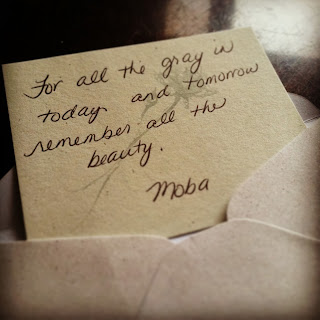 For all the gray in
today and tomorrow
remember all the
beauty.
Moba